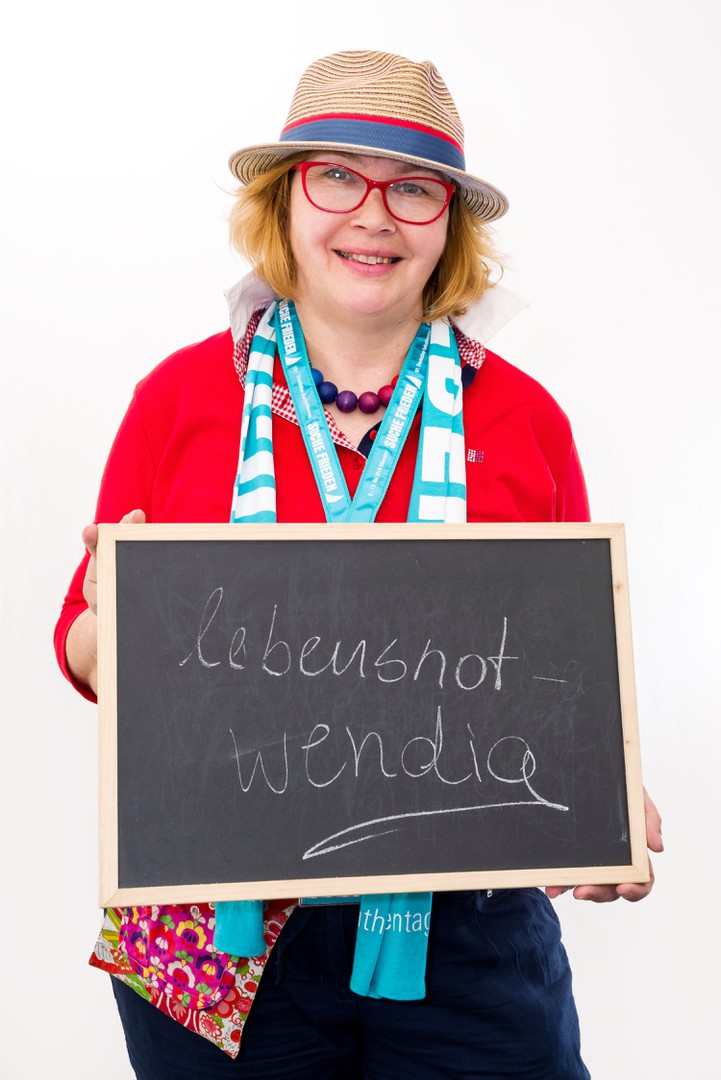 SUCHE FRIEDEN
SUCHE FRIEDEN
SUCHE FRIEDEN
lebensnot-
wendig